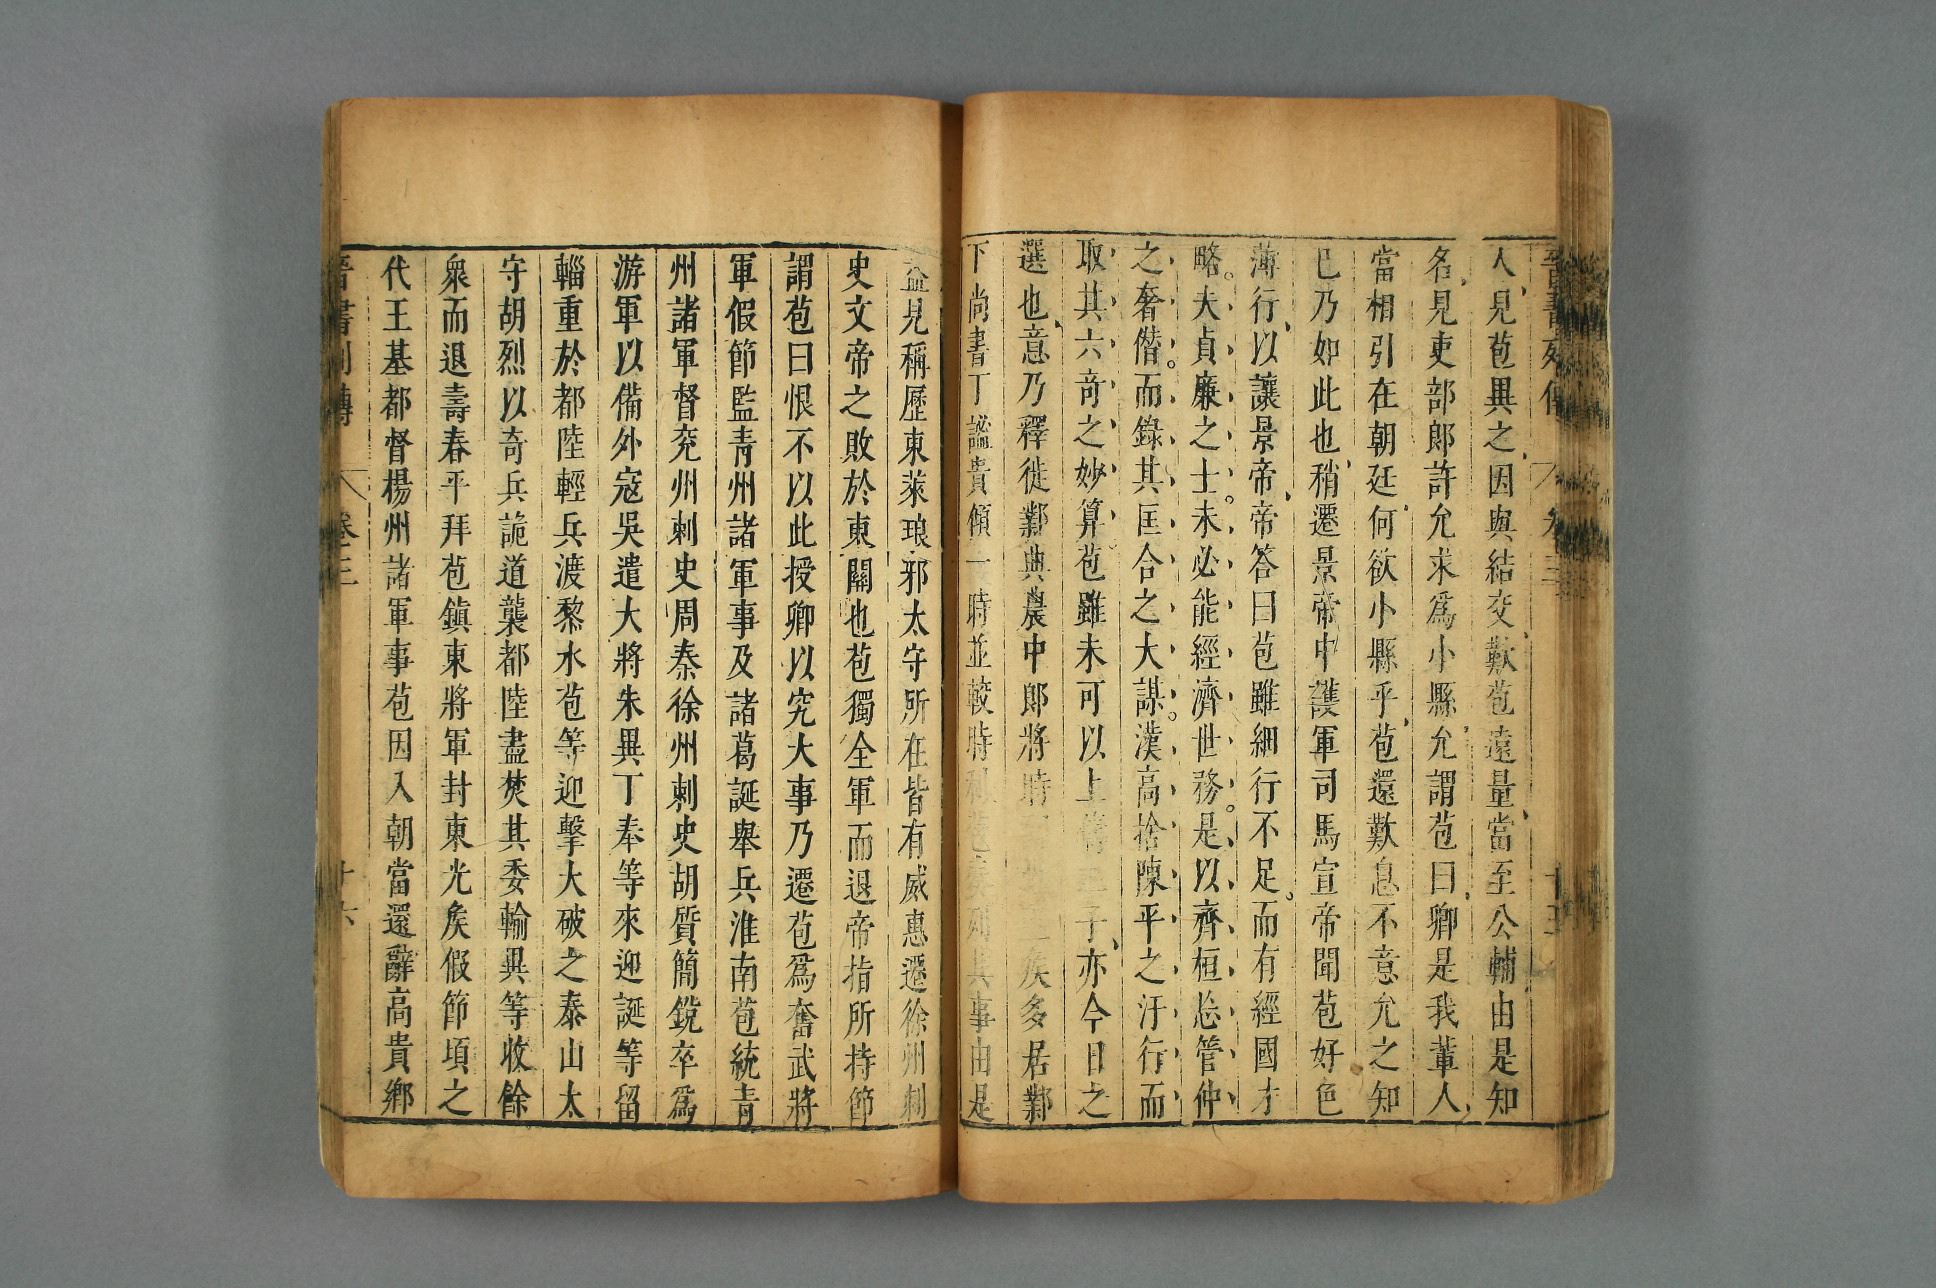 人見苞異之因與結交歎苞遠量當至公輔由是知
名見吏部郎許允求爲小縣允謂苞曰卿是我輩人
當相引在朝廷何欲小縣乎苞還歎息不意允之知
已乃如此也稍遷景帝中護軍司馬宣帝聞苞好色
薄行以讓景帝帝答曰苞雖細行不足而有經國才
略夫貞廉之士未必能經濟世務是以齊桓忘管仲
之奢僭而錄其匡合之大謀漢高捨陳平之汙行而
取其六奇之妙算苞雖未可以上儔二子亦今日之
選也意乃釋徙鄴典農中郎將時矦多居鄴
下尚書丁謐貴傾一時並較時利苞奏列其事由是
益見稱歷東萊琅邪太守所在皆有威惠遷徐州刺
史文帝之敗於東關也苞獨全軍而退帝指所持節
謂苞曰恨不以此授卿以究大事乃遷苞爲奮武將
軍假節監青州諸軍事及諸葛誕舉兵淮南苞統青
州諸軍督兗州刺史周泰徐州刺史胡質簡銳卒爲
游軍以備外寇吳遣大將朱異丁奉等來迎誕等留
輜重於都陸輕兵渡黎水苞等迎擊大破之泰山太
守胡烈以奇兵詭道襲都陸盡焚其委輸異等收餘
衆而退壽春平拜苞鎮東將軍封東光矦假節頃之
代王基都督楊州諸軍事苞因入朝當還辭高貴鄉
晉書列傳 卷三 十六